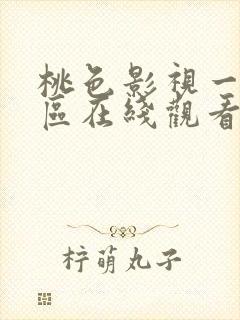 桃色影視一
區在綫觀看
柠萌丸子